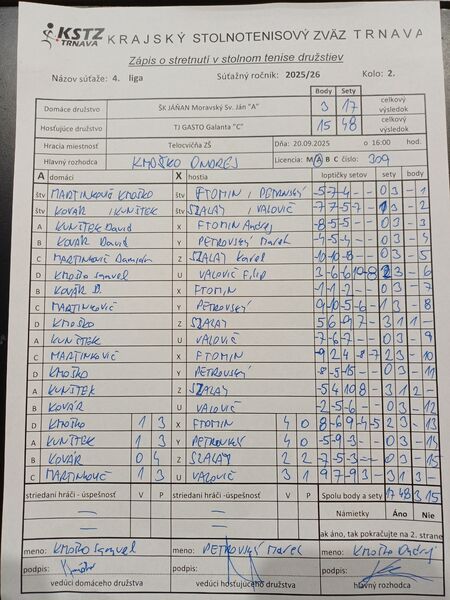 KSTZ TRNAVA KRAJSKÝ STOLNOTENISOVÝ ZVÄZ TRNAVA
Zápis o stretnutí v stolnom tenise družstiev
Názov súťaže: 4. liga Súťažný ročník: 2025/26 Kolo: 2.
Body Sety
Domáce družstvo ŠK JÁŇAN Moravský Sv. Ján "A" 3 17 celkový výsledok
Hosťujúce družstvo TJ GASTO Galanta "C" 15 48 celkový výsledok
Hracia miestnosť Telocvičňa ZŠ Dňa: 20.09.2025 o 16:00 hod.
Hlavný rozhodca KMOŠKO ONDREJ Licencia: M A B C číslo: 309
A domáci X hostia loptičky setov sety body
štv MARTINKOVIČ KMOŠKO štv FTOMIN, PETROVSKÝ -5 -7 -4 - - 0 3 - 1
štv KOVÁR, KUNÍTEK štv SZALAY, VALOVIČ
A KUNÍTEK David X FTOMIN Andrej -8 -5 -5 - - 0 3 - 3
B KOVÁR David Y PETROVSKÝ Marek -4 -5 -4 - - 0 3 - 4
C MARTINKOVIČ Damian Z SZALAY Karol -10 -10 -8 - - 0 3 - 5
D KMOŠKO Samuel U VALOVIČ Filip
B KOVÁR D. X FTOMIN -1 -1 -2 - - 0 3 - 7
C MARTINKOVIČ Y PETROVSKÝ 9 -10 -5 -6 - 1 3 - 8
D KMOŠKO Z SZALAY 5 6 -9 7 - 3 1 1 -
A KUNÍTEK U VALOVIČ -7 -6 -7 - - 0 3 - 9
C MARTINKOVIČ X FTOMIN -9 2 4 -8 -7 2 3 - 10
D KMOŠKO Y PETROVSKÝ 0 3 - 11
A KUNÍTEK Z SZALAY -5 4 10 8 - 3 1 2 -
B KOVÁR U VALOVIČ -2 -5 -6 - - 0 3 - 12
D KMOŠKO 1 3 X FTOMIN 4 0 8 -6 9 -4 -5 2 3 - 13
A KUNÍTEK 1 3 Y PETROVSKÝ 4 0 -5 -9 -3 - - 0 3 - 14
B KOVÁR 0 4 Z SZALAY 2 2 -7 -5 -3 - - 0 3 - 15
C MARTINKOVIČ 1 3 U VALOVIČ 3 1 9 7 -9 3 - 3 1 3 -
striedaní hráči - úspešnosť V P striedaní hráči - úspešnosť V P Spolu body a sety 17 48 3 15
Námietky Áno Nie
ak áno, tak pokračujte na 2. strane
meno: KMOŠKO Samuel meno: PETROVSKÝ Marek meno: KMOŠKO Ondrej
podpis: podpis: podpis:
vedúci domáceho družstva vedúci hosťujúceho družstva hlavný rozhodca